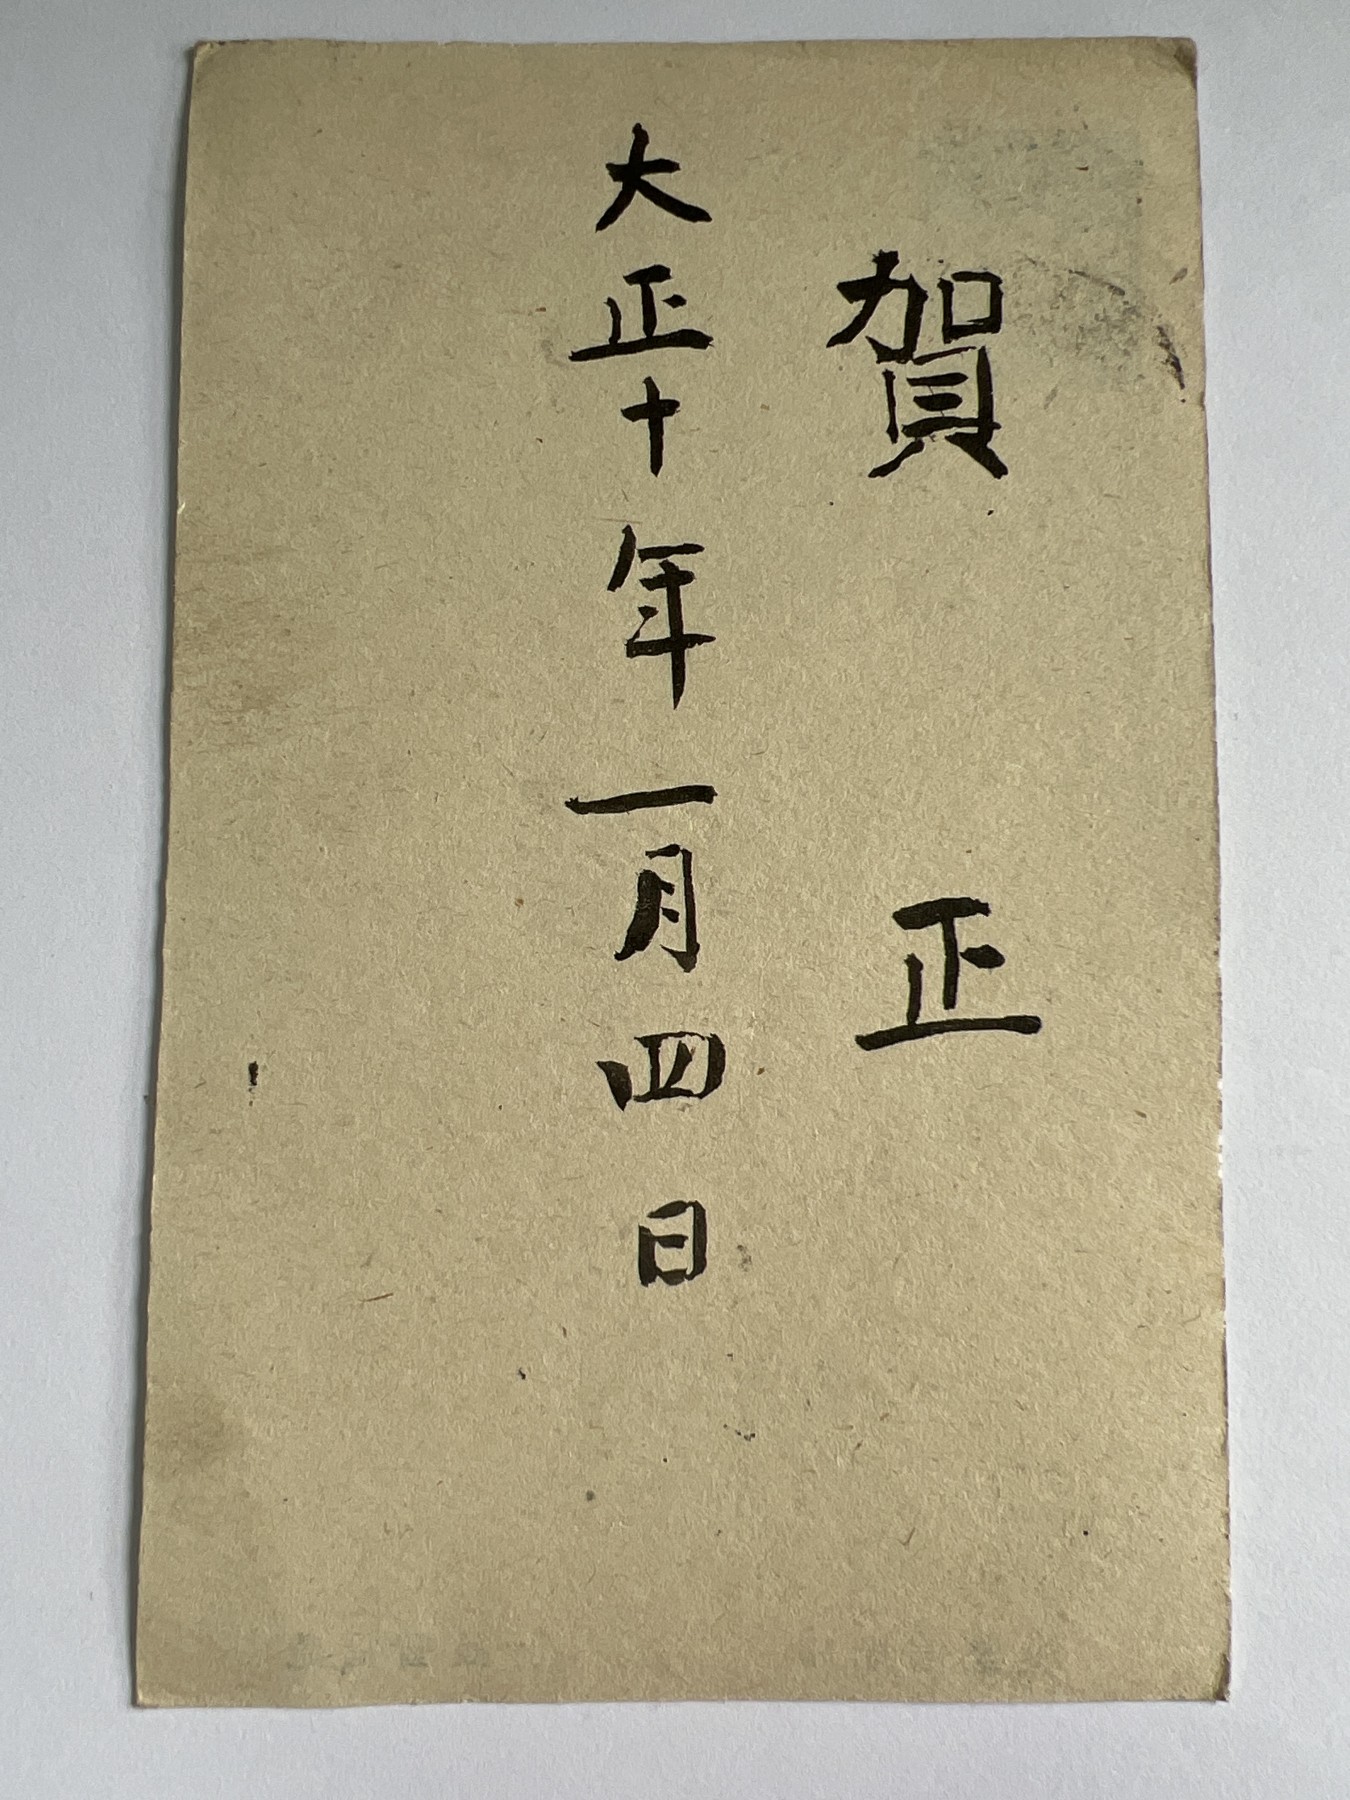 賀正
大正十年一月四日